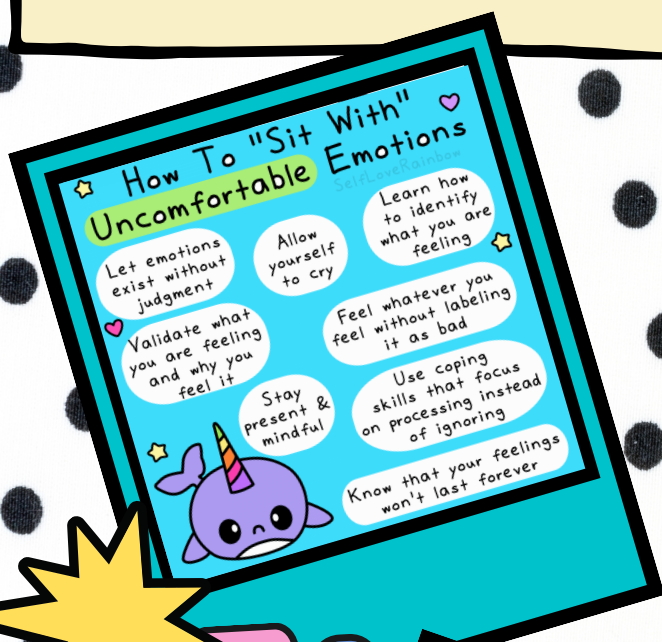 How To "Sit With"
Uncomfortable Emotions
SelfLoveRainbow
Let emotions
exist without
judgment
Allow
yourself
to cry
Learn how
to identify
what you are
feeling
Validate what
you are feeling
and why you
feel it
Feel whatever you
feel without labeling
it as bad
Stay
present &
mindful
Use coping
skills that focus
on processing instead
of ignoring
Know that your feelings
won't last forever